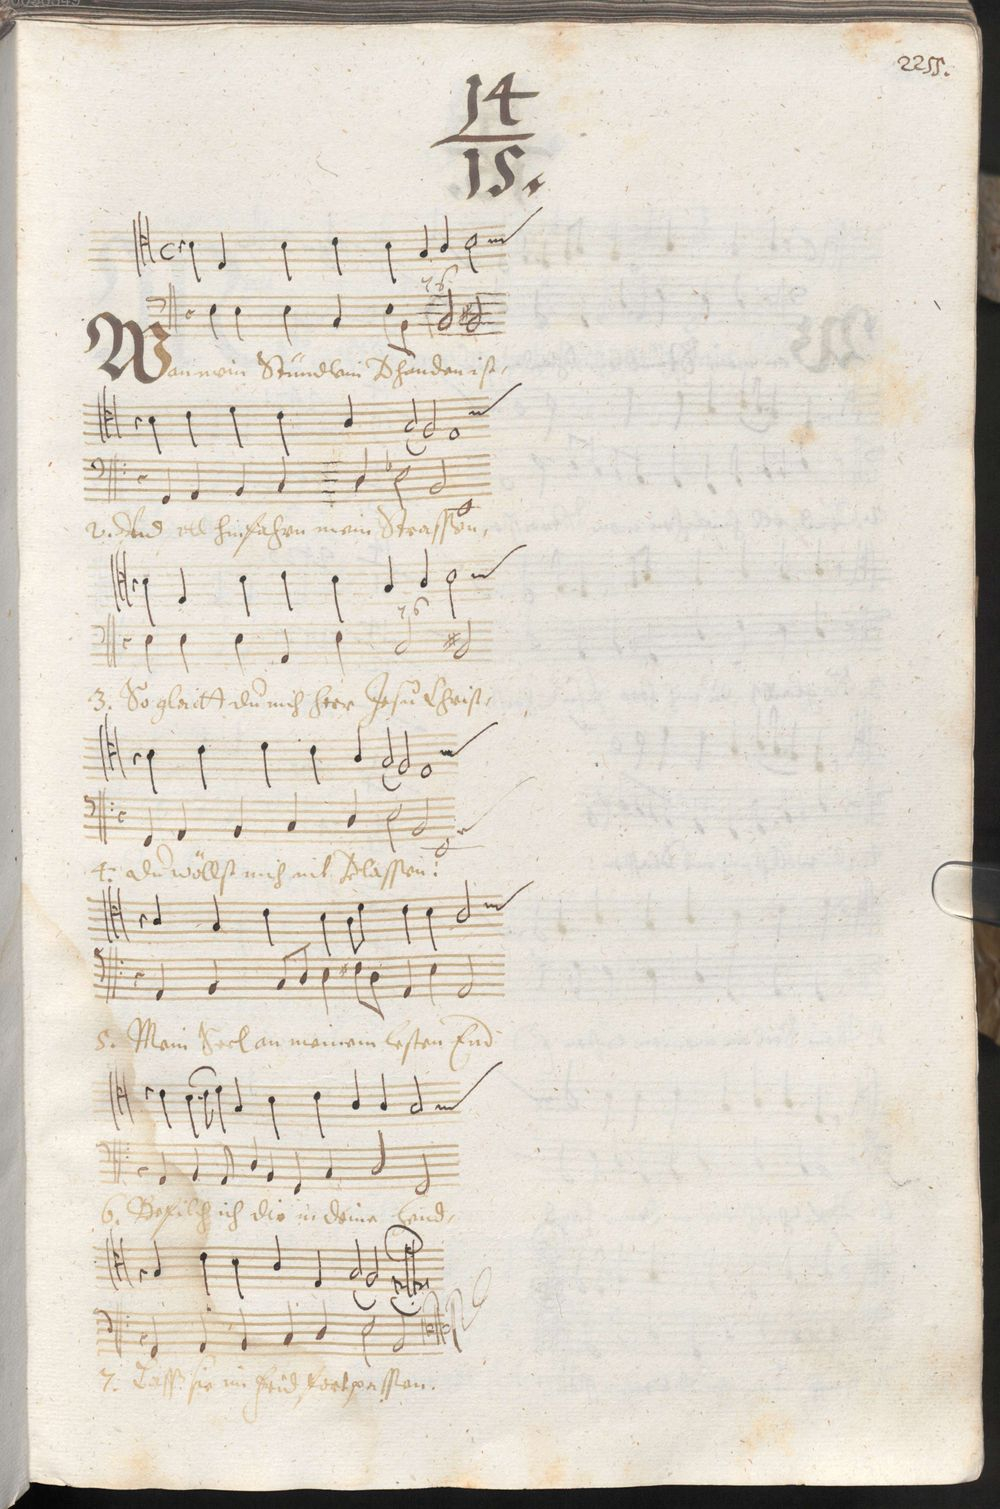 2255.
14
15.
76
Wan mein Stündlein Vhanden ist,
2. Und sol hinfahrn mein Strassen,
76
3. So gleitt du mich Herr Jesu Christ,
4. du wöllst mich nit Vlassen:
5. Mein Seel an meinem lesten End
6. Befilch ich dir in deine Hend,
7. Lass sie im frid